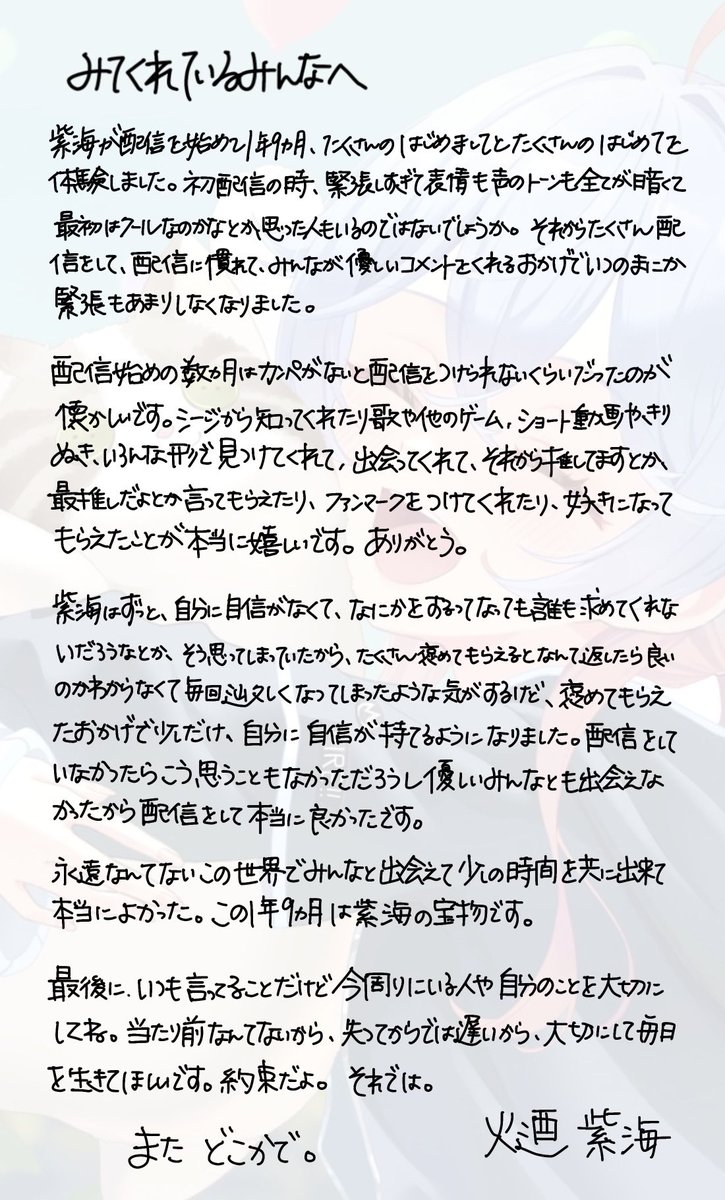 みてくれているみんなへ
紫海が配信を始めて1年9ヵ月、たくさんのはじめましてとたくさんのはじめてを
体験しました。初配信の時、緊張しすぎて表情も声のトーンも全てが暗くて
最初はクールなのかなとか、思った人もいるのではないでしょうか。それからたくさん配
信をして、配信に慣れて、みんなが優しいコメントをくれるおかげでいつのまにか
緊張もあまりしなくなりました。
配信始めの数ヵ月はカンペがないと配信をつけられないくらいだったのが
懐かしいです。シージから知ってくれたり歌や他のゲーム、ショート動画やきり
ぬき、いろんな形で見つけてくれて、出会ってくれて、それから推してますとか、
最推しだよとか言ってもらえたり、ファンマークをつけてくれたり、好きになって
もらえたことが本当に嬉しいです。ありがとう。
紫海はずっと、自分に自信がなくて、なにかをするってなっても誰も求めてくれな
いだろうなとか、そう思ってしまっていたから、たくさん褒めてもらえるとなんて返したら良い
のかわからなくて毎回辿々しくなってしまったような気がするけど、褒めてもらえ
たおかげで少しだけ、自分に自信が持てるようになりました。配信をして
いなかったらこう思うこともなかっただろうし優しいみんなとも出会えな
かったから配信をして本当に良かったです。
永遠なんてないこの世界でみんなと出会えて少しの時間を共に出来て
本当によかった。この1年9ヵ月は紫海の宝物です。
最後に、いつも言ってることだけど今周りにいる人や自分のことを大切に
してね。当たり前なんてないから、失ってからでは遅いから、大切にして毎日
を生きてほしいです。約束だよ。それでは。
また どこかで。
紫海